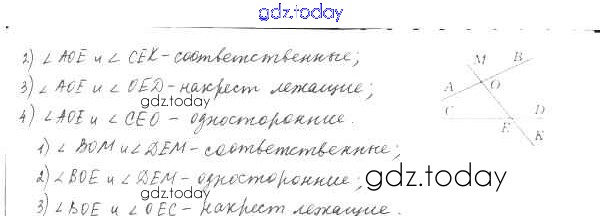 gdz.today
2) ∠AOE и ∠CEK - соответственные;
3) ∠AOE и ∠OED - накрест лежащие;
gdz.today
4) ∠AOE и ∠CEO - односторонние.
1) ∠BOM и ∠DEM - соответственные;
2) ∠BOE и ∠DEM - односторонние;
gdz.today
3) ∠BOE и ∠OEC - накрест лежащие.
gdz.today
M B
A O
C D
E K